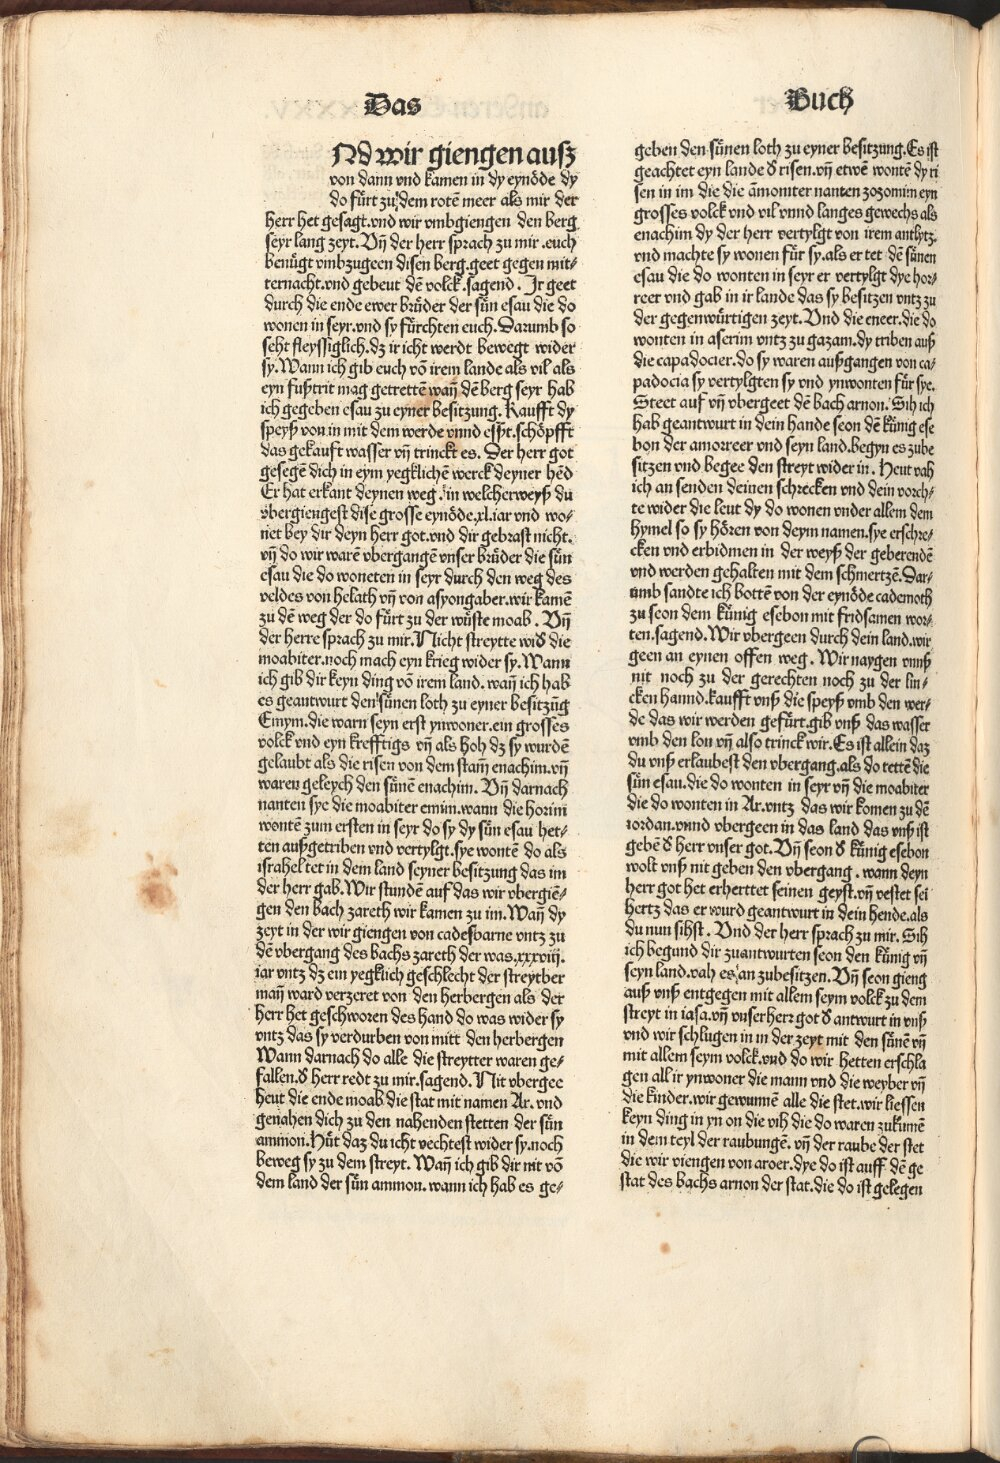 Das
Buch
ND wir giengen außz
von dann vnd kamen in dy eynöde dy
do fürt zu dem rotē meer als mir der
herr het gesagt.vnd wir vmbgiengen den berg
seyr lang zeyt. Vn̄ der herr sprach zu mir .euch
benügt vmbzugeen disen berg.geet gegen mit⸗
ternacht.vnd gebeut dē volck.sagend . Ir geet
durch die ende ewer brüder der sün esau die do
wonen in seyr.vnd sy fürchten euch. Darumb so
seht fleyssiglich.dz ir icht werdt bewegt wider
sy. Wann ich gib euch vō irem lande als vil als
eyn fußtrit mag getrettē wan̄ dē berg seyr hab
ich gegeben esau zu eyner besitzung. Kaufft dy
speyß von in mit dem werde vnnd eßt.schöpfft
das gekauft wasser vn̄ trinckt es. Der herr got
gesegē dich in eym yegklichē werck deyner hēd
Er hat erkant deynen weg .in welcherweyß du
vbergiengest dise grosse eynöde.xl.iar vnd wo⸗
net bey dir deyn herr got.vnd dir gebrast nicht.
vn̄ do wir warē vbergangē vnser brüder die sün
esau die do woneten in seyr durch den weg des
veldes von helath vn̄ von asyongaber.wir kamē
zu dē weg der do fürt zu der wüste moab . Vn̄
der herre sprach zu mir. Nicht streytte wid̄ die
moabiter.noch mach eyn krieg wider sy. Wann
ich gib dir keyn ding vō irem land. wan̄ ich hab
es geantwurt den sünen loth zu eyner besitzūg
Emym.die warn seyn erst ynwoner.ein grosses
volck vnd eyn krefftigs vn̄ als hoh dz sy wurdē
gelaubt als die risen von dem stam̄ enachim.vn̄
waren geleych den sünē enachim. Vn̄ darnach
nanten sye die moabiter emim.wann die horim
wontē zum ersten in seyr do sy dy sün esau het⸗
ten außgetriben vnd vertylgt.sye wontē do als
israhel tet in dem land seyner besitzung das im
der herr gab. Wir stundē auf das wir vbergiē⸗
gen den bach zareth wir kamen zu im. Wan̄ dy
zeyt in der wir giengen von cadesbarne vntz zu
dē vbergang des bachs zareth der was.xxxviij.
iar vntz dz ein yegklich geschlecht der streytber
man̄ ward verzeret von den herbergen als der
herr het geschworen des hand do was wider sy
vntz das sy verdurben von mitt den herbergen
Wann darnach do alle die streytter waren ge⸗
fallen.d̄ herr redt zu mir.sagend. Nit vbergee
heut die ende moab die stat mit namen Ar. vnd
genahen dich zu den nahenden stetten der sün
ammon. Hüt daz du icht vechtest wider sy.noch
beweg sy zu dem streyt. Wan̄ ich gib dir nit vō
dem land der sün ammon. wann ich hab es ge⸗
geben den sünen loth zu eyner besitzung. Es ist
geachtet eyn lande d̄ risen.vn̄ etwē wontē dy ri
sen in im die die āmoniter nanten zozomim eyn
grosses volck vnd vil vnnd langes gewechs als
enachim dy der herr vertylgt von irem antlytz.
vnd machte sy wonen für sy.als er tet dē sünen
esau die do wonten in seyr er vertylgt dye hor⸗
reer vnd gab in ir lande das sy besitzen vntz zu
der gegenwürtigen zeyt. Vnd die eneer.die do
wonten in aserim vntz zu gazam.dy triben auß
die capadocier.do sy waren außgangen von ca⸗
padocia sy vertylgten sy vnd ynwonten für sye.
Steet auf vn̄ vbergeet dē bach arnon. Sih ich
hab geantwurt in dein hande seon dē künig ese
bon der amorreer vnd seyn land.begyn es zube
sitzen vnd begee den streyt wider in. Heut vah
ich an senden deinen schrecken vnd dein vorch⸗
te wider die leut dy do wonen vnder allem dem
hymel so sy hören von deym namen.sye erschre⸗
cken vnd erbidmen in der weyß der geberendē
vnd werden gehalten mit dem schmertzē. Dar⸗
umb sandte ich bottē von der eynöde cademoth
zu seon dem künig esebon mit fridsamen wor⸗
ten.sagend. Wir vbergeen durch dein land.wir
geen an eynen offen weg. Wir naygen vnnß
nit noch zu der gerechten noch zu der lin⸗
cken hannd.kaufft vnß die speyß vmb den wer⸗
de das wir werden gefürt.gib vnß das wasser
vmb den lon vn̄ also trinck wir. Es ist allein daz
du vnß erlaubest den vbergang.als do tettē die
sün esau.die do wonten in seyr vn̄ die moabiter
die do wonten in Ar.vntz das wir komen zu dē
iordan.vnnd vbergeen in das land das vnß ist
gebē d̄ herr vnser got. Vn̄ seon d̄ künig esebon
wolt vnß nit geben den vbergang . wann deyn
herr got het erherttet seinen geyst.vn̄ vestet sei
hertz das er wurd geantwurt in dein hende.als
du nun sihst . Vnd der herr sprach zu mir. Sih
ich begund dir zuantwurten seon den künig vn̄
seyn land.vah es an zubesitzen. Vn̄ seon gieng
auß vnß entgegen mit allem seym volck zu dem
streyt in iasa.vn̄ vnser herr got d̄ antwurt in vnß
vnd wir schlugen in in der zeyt mit den sünē vn̄
mit allem seym volck.vnd do wir hetten erschla
gen all ir ynwoner die mann vnd die weyber vn̄
die kinder.wir gewunnē alle die stet.wir liessen
keyn ding in yn on die vih die do waren zukumē
in dem teyl der raubungē. vn̄ der raube der stet
die wir viengen von aroer.dye do ist auff dē ge
stat des bachs arnon der stat.die do ist gelegen